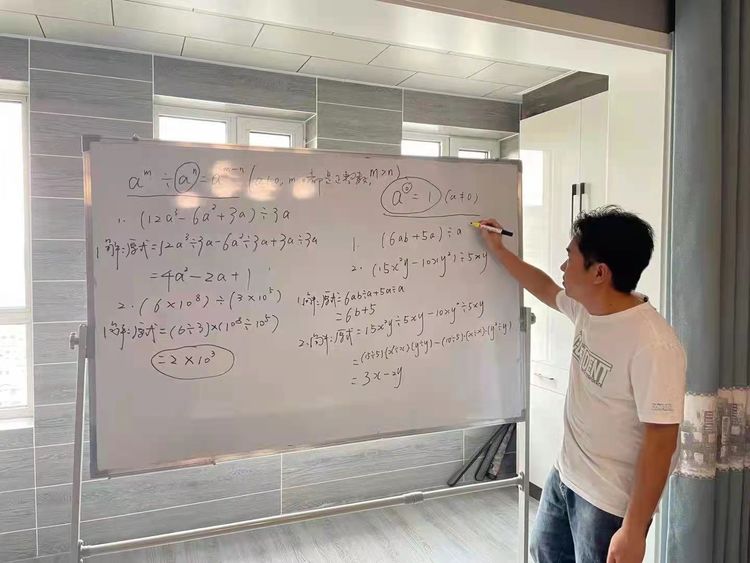 aᵐ ÷ aⁿ = aᵐ⁻ⁿ (a≠0, m, n都是正整数, m>n)
1. (12a³-6a²+3a)÷3a
1.解:原式=12a³÷3a-6a²÷3a+3a÷3a
=4a²-2a+1
2. (6×10⁸)÷(3×10⁵)
解:原式=(6÷3)×(10⁸÷10⁵)
=2×10³
a⁰=1 (a≠0)
1. (6ab+5a)÷a
2. (15x²y-10xy²)÷5xy
1.解:原式=6ab÷a+5a÷a
=6b+5
2.解:原式=15x²y÷5xy-10xy²÷5xy
=(15÷5)(x²÷x)·(y÷y)-(10÷5)·(x÷x)·(y²÷y)
=3x-2y